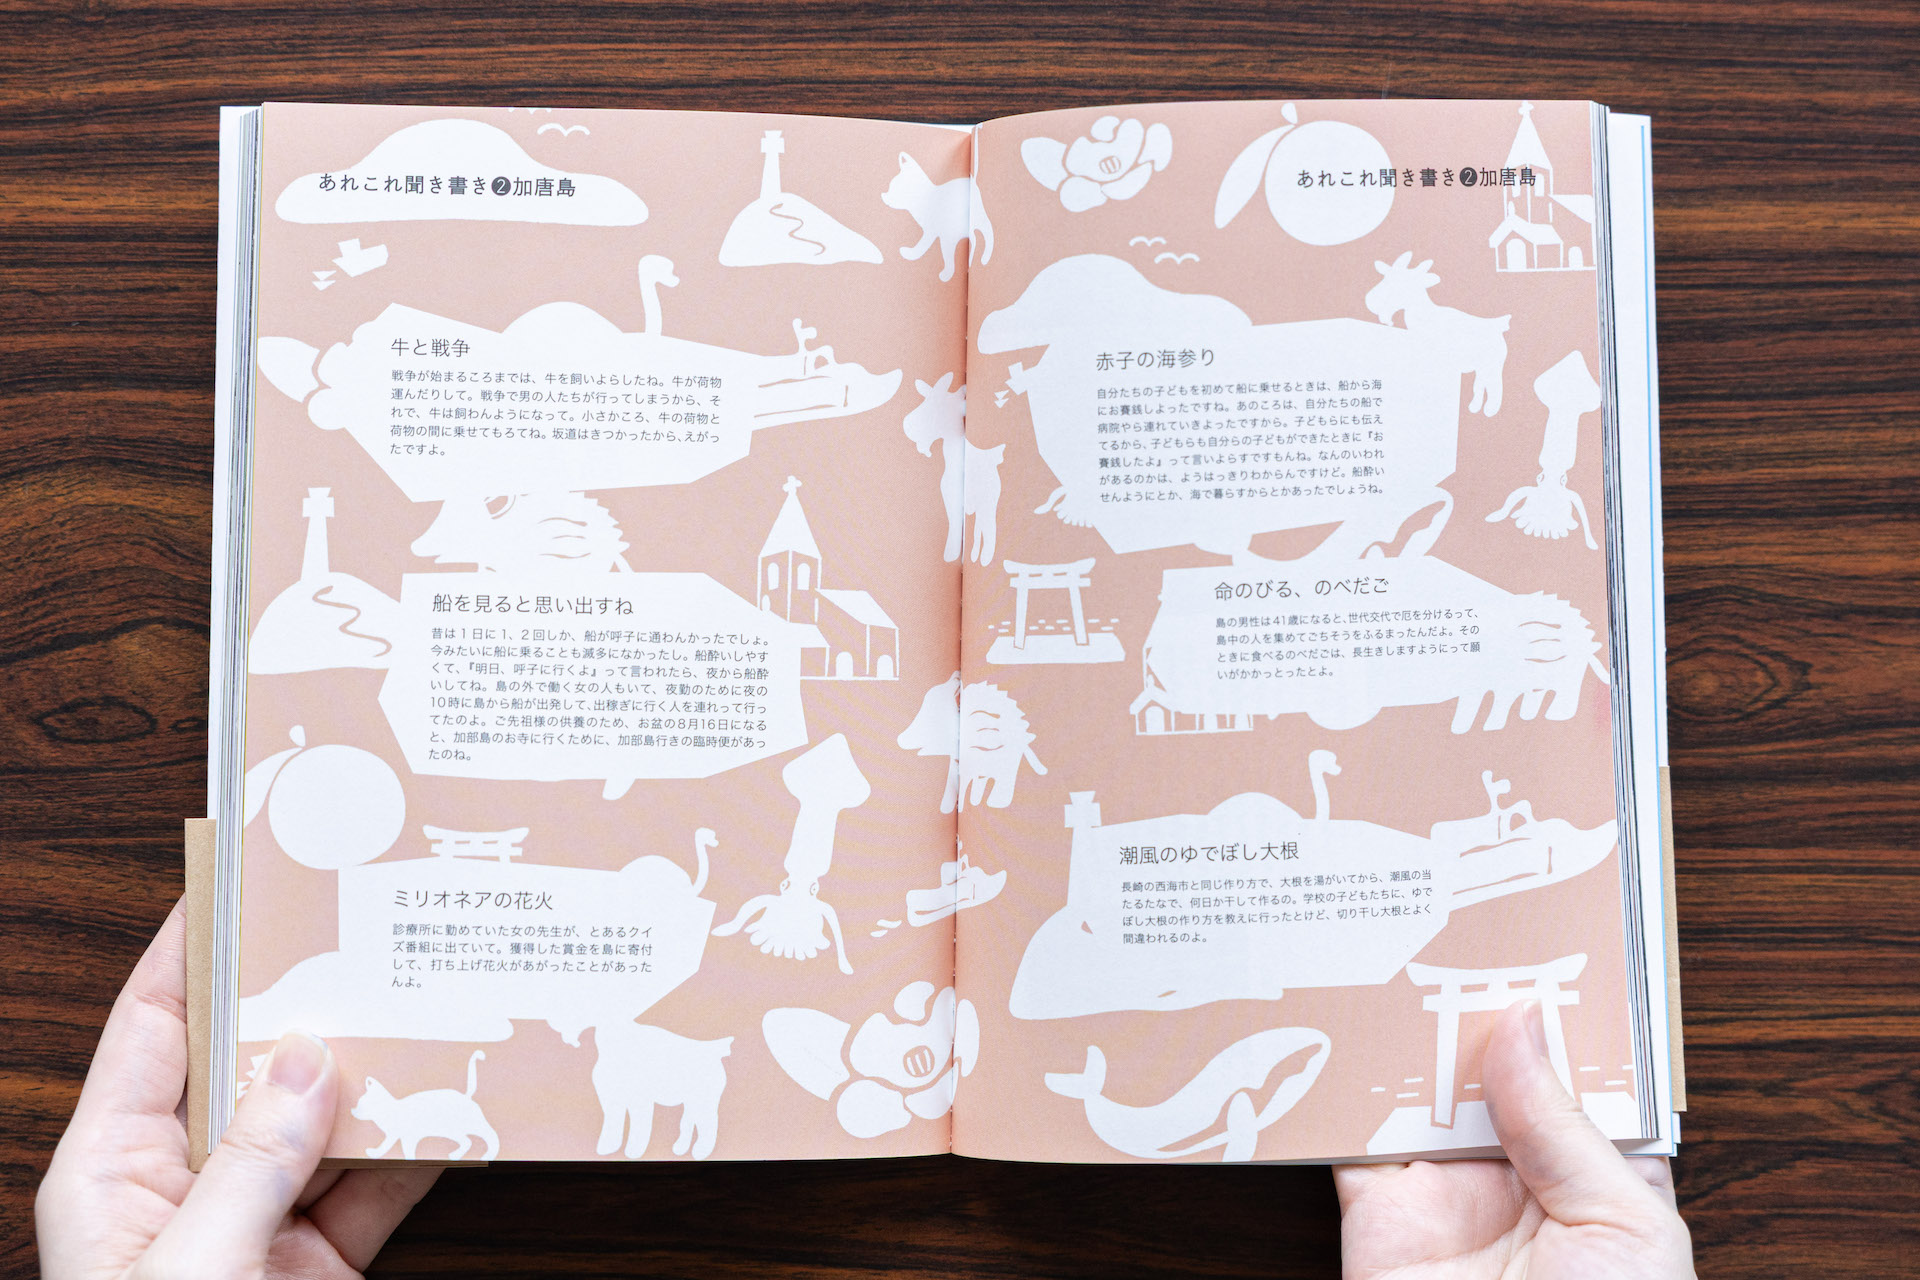 あれこれ聞き書き❷加唐島
牛と戦争
戦争が始まるころまでは、牛を飼いよらしたね。牛が荷物
運んだりして。戦争で男の人たちが行ってしまうから、そ
れで、牛は飼わんようになって。小さかころ、牛の荷物と
荷物の間に乗せてもろてね。坂道はきつかったから、えがっ
たですよ。
船を見ると思い出すね
昔は1日に1、2回しか、船が呼子に通わんかったでしょ。
今みたいに船に乗ることも滅多になかったし。船酔いしやす
くて、『明日、呼子に行くよ』って言われたら、夜から船酔
いしてね。島の外で働く女の人もいて、夜勤のために夜の
10時に島から船が出発して、出稼ぎに行く人を連れって行っ
てたのよ。ご先祖様の供養のため、お盆の8月16日になる
と、加部島のお寺に行くために、加部島行きの臨時便があっ
たのね。
ミリオネアの花火
診療所に勤めていた女の先生が、とあるクイ
ズ番組に出ていて。獲得した賞金を島に寄付
して、打ち上げ花火があがったことがあった
んよ。
あれこれ聞き書き❷加唐島
赤子の海参り
自分たちの子どもを初めて船に乗せるときは、船から海
にお賽銭しよったですね。あのころは、自分たちの船で
病院やら連れていきよったですから。子どもらにも伝え
てるから、子どもらも自分らの子どもができたときに『お
賽銭したよ』って言いよらすですもんね。なんのいわれ
があるのかは、ようはっきりわからんですけど。船酔い
せんようにとか、海で暮らすからとかあったでしょうね。
命のびる、のべだご
島の男性は41歳になると、世代交代で厄を分けるって、
島中の人を集めてごちそうをふるまったんだよ。その
ときに食べるのべだごは、長生きしますようにって願
いがかかっとったとよ。
潮風のゆでぼし大根
長崎の西海市と同じ作り方で、大根を湯がいてから、潮風の当
たるたなで、何日か干して作るの。学校の子どもたちに、ゆで
ぼし大根の作り方を教えに行ったとけど、切り干し大根とよく
間違われるのよ。